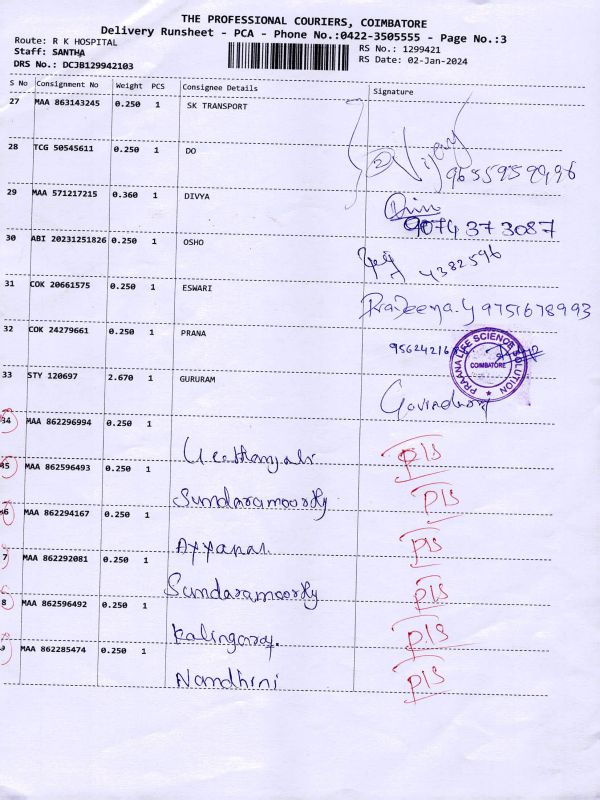 THE PROFESSIONAL COURIERS, COIMBATORE
Delivery Runsheet - PCA - Phone No.:0422-3505555 - Page No.:3
Route: R K HOSPITAL
RS No.: 1299421
Staff: SANTHA
RS Date: 02-Jan-2024
DRS No.: DCJB129942103
S No Consignment No Weight PCS Consignee Details Signature
27 MAA 863143245 0.250 1 SK TRANSPORT
28 TCG 50545611 0.250 1 DO
2 Vijay
29 MAA 571217215 0.360 1 DIVYA
9074373087
30 ABI 20231251826 0.250 1 OSHO
4382596
31 COK 20661575 0.250 1 ESWARI
Pradeema.y 9751678993
32 COK 24279661 0.250 1 PRANA
PRAANA LIFE SCIENCE SOLUTION
COIMBATORE
33 STY 120697 2.670 1 GURURAM
34 MAA 862296994 0.250 1
Geethanjali P15
MAA 862596493 0.250 1
Sundaramoorthy P15
MAA 862294167 0.250 1
Ayyanar P15
7 MAA 862292081 0.250 1
Sundaramoorthy P15
8 MAA 862596492 0.250 1
Kalingaraj. P15
9 MAA 862285474 0.250 1
Nandhini P15